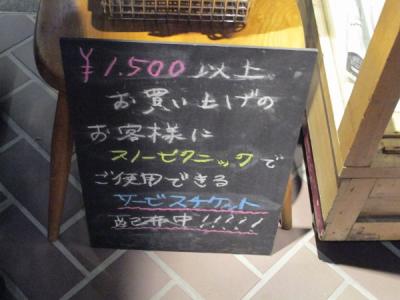 ¥1.500以上
お買い上げの
お客様に
スノーピクニックで
ご使用できる
サービスチケット
配布中!!!!!